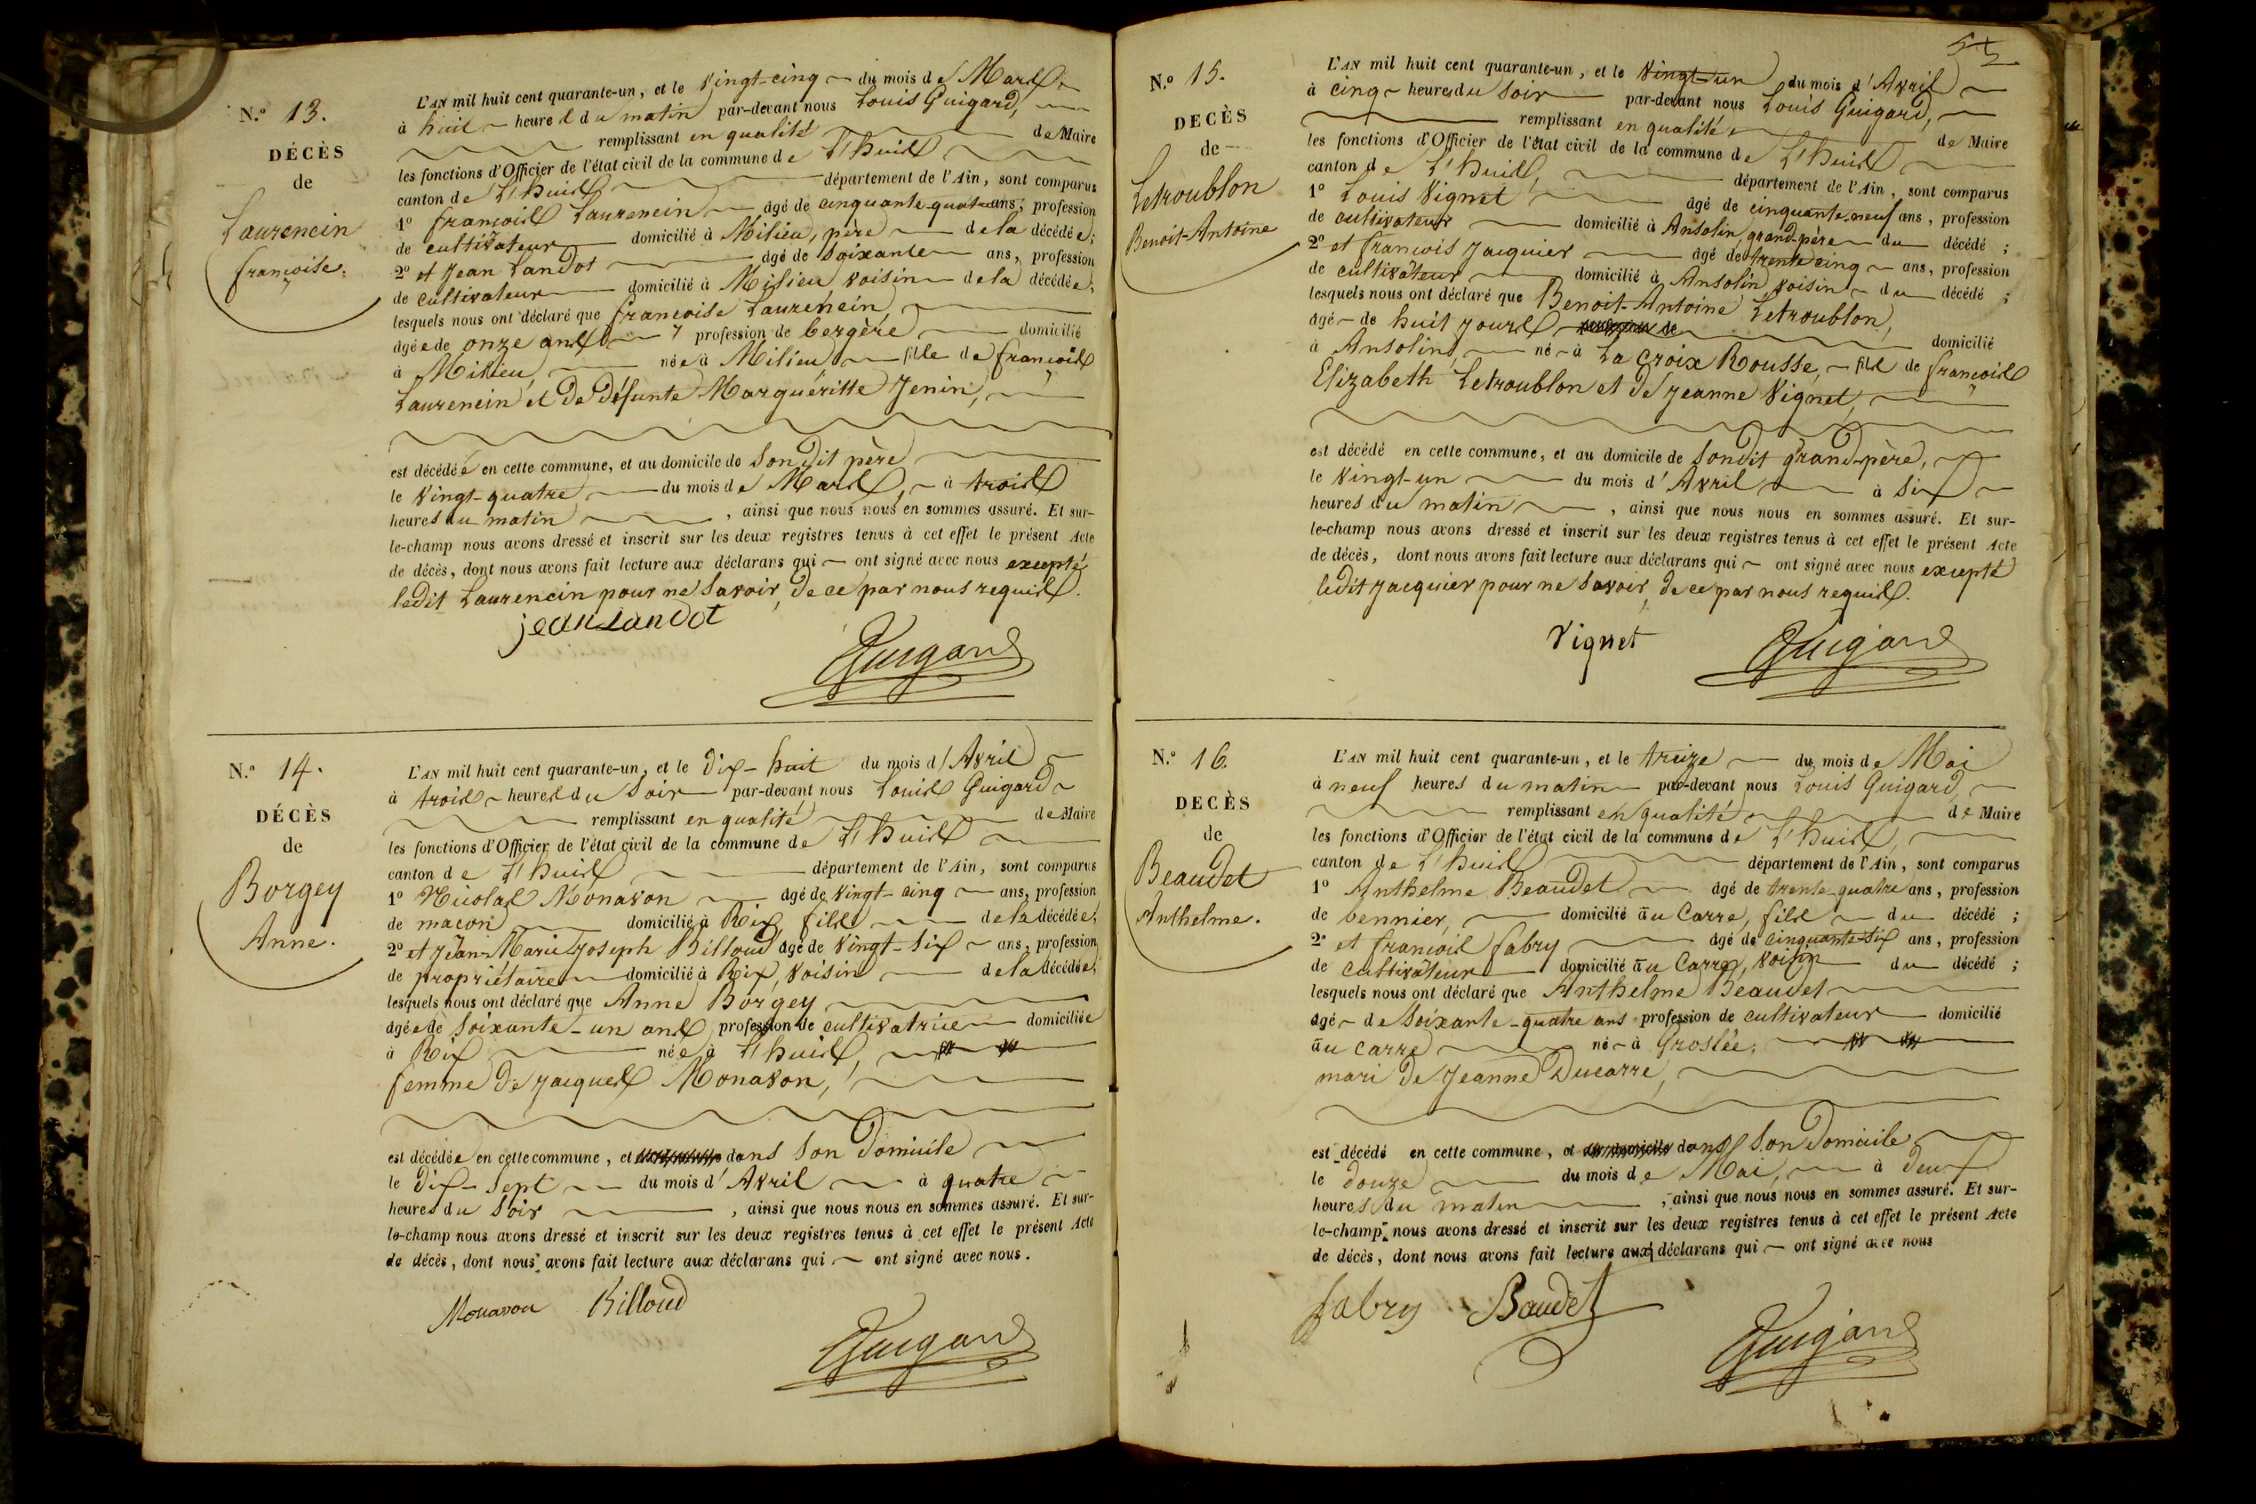 N.º 13.
DÉCÈS
de
Laurencin
françoise.
L'AN mil huit cent quarante-un, et le vingt-cinq du mois de Mars
à huit heures du matin par-devant nous Louis Guigard,
remplissant en qualité de Maire
les fonctions d'Officier de l'état civil de la commune de L'huis
canton de L'huis département de l'Ain, sont comparus
1º françois Laurencin âgé de cinquante-quatre ans, profession
de cultivateur domicilié à Milieu, père de la décédée;
2º et Jean Landot âgé de soixante ans, profession
de cultivateur domicilié à Milieu, voisin de la décédée;
lesquels nous ont déclaré que françoise Laurencin,
âgée de onze ans, profession de bergère domicilié
à Milieu, née à Milieu fille de françois
Laurencin et de défunte Marguéritte Jenin,
est décédée en cette commune, et au domicile de son dit père
le vingt-quatre du mois de Mars, à trois
heures du matin, ainsi que nous nous en sommes assuré. Et sur-
le-champ nous avons dressé et inscrit sur les deux registres tenus à cet effet le présent Acte
de décès, dont nous avons fait lecture aux déclarans qui ont signé avec nous excepté
ledit Laurencin pour ne savoir, de ce par nous requis.
jean Landot
Guigard
N.º 14.
DÉCÈS
de
Borgey
Anne.
L'AN mil huit cent quarante-un, et le dix-huit du mois d'Avril
à trois heures du soir par-devant nous Louis Guigard
remplissant en qualité de Maire
les fonctions d'Officier de l'état civil de la commune de L'huis
canton de L'huis département de l'Ain, sont comparus
1º Nicolas Monavon âgé de vingt-cinq ans, profession
de maçon domicilié à Rix, fils de la décédée;
2º et Jean-Marie Joseph Billoud âgé de vingt-six ans, profession
de propriétaire domicilié à Rix, voisin de la décédée;
lesquels nous ont déclaré que Anne Borgey
âgée de soixante-un ans, profession de cultivatrice domiciliée
à Rix née à L'huis,
femme de Jacques Monavon,
est décédée en cette commune, et dans son domicile
le dix-sept du mois d'Avril à quatre
heures du soir, ainsi que nous nous en sommes assuré. Et sur-
le-champ nous avons dressé et inscrit sur les deux registres tenus à cet effet le présent Acte
de décès, dont nous avons fait lecture aux déclarans qui ont signé avec nous.
Monavon Billoud
Guigard
N.º 15.
DECÈS
de
Letroublon
Benoit-Antoine
L'AN mil huit cent quarante-un, et le vingt-un du mois d'Avril
à cinq heures du soir par-devant nous Louis Guigard,
remplissant en qualité de Maire
les fonctions d'Officier de l'état civil de la commune de L'huis
canton de L'huis, département de l'Ain, sont comparus
1º Louis Vignet âgé de cinquante-neuf ans, profession
de cultivateur domicilié à Ansolin, grand-père du décédé;
2º et françois Jacquier âgé de trente cinq ans, profession
de cultivateur domicilié à Ansolin, voisin du décédé;
lesquels nous ont déclaré que Benoit-Antoine Letroublon,
âgé de huit jours domicilié
à Ansolin, né à La Croix Rousse, fils de françois
Elizabeth Letroublon et de Jeanne Vignet,
est décédé en cette commune, et au domicile de son dit grand-père,
le vingt-un du mois d'Avril à six
heures du matin, ainsi que nous nous en sommes assuré. Et sur-
le-champ nous avons dressé et inscrit sur les deux registres tenus à cet effet le présent Acte
de décès, dont nous avons fait lecture aux déclarans qui ont signé avec nous excepté
ledit Jacquier pour ne savoir, de ce par nous requis.
Vignet
Guigard
N.º 16.
DECÈS
de
Beaudet
Anthelme.
L'AN mil huit cent quarante-un, et le treize du mois de Mai
à neuf heures du matin par-devant nous Louis Guigard,
remplissant en qualité de Maire
les fonctions d'Officier de l'état civil de la commune de L'huis,
canton de L'huis département de l'Ain, sont comparus
1º Anthelme Beaudet âgé de trente-quatre ans, profession
de bennier, domicilié au Carre, fils du décédé;
2º et françois fabry âgé de cinquante-six ans, profession
de cultivateur domicilié au Carre, voisin du décédé;
lesquels nous ont déclaré que Anthelme Beaudet
âgé de soixante-quatre ans profession de cultivateur domicilié
au Carre né à Groslée,
mari de Jeanne Ducarre,
est décédé en cette commune, et dans son domicile
le douze du mois de Mai, à deux
heures du matin, ainsi que nous nous en sommes assuré. Et sur-
le-champ nous avons dressé et inscrit sur les deux registres tenus à cet effet le présent Acte
de décès, dont nous avons fait lecture aux déclarans qui ont signé avec nous
fabry Baudet
Guigard